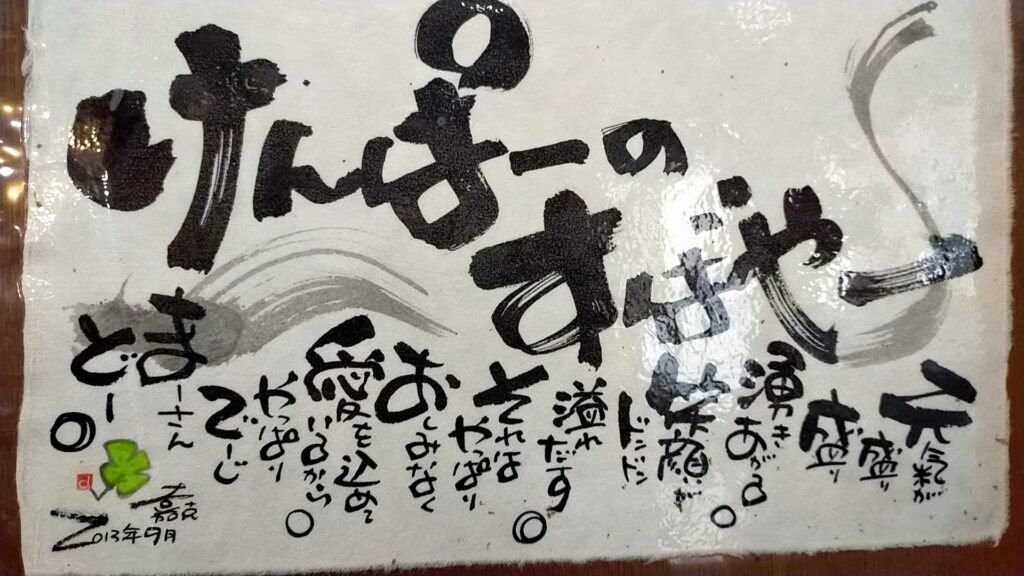 けんぱーの
すばやー
元氣が
盛り
盛り
湧き
あがる
笑顔が
ドンドン
溢れ
だす
それは
やっぱり
おしみなく
愛を込めて
いるから
やっぱり
でーじ
まーさん
どー
嘉克
2013年9月